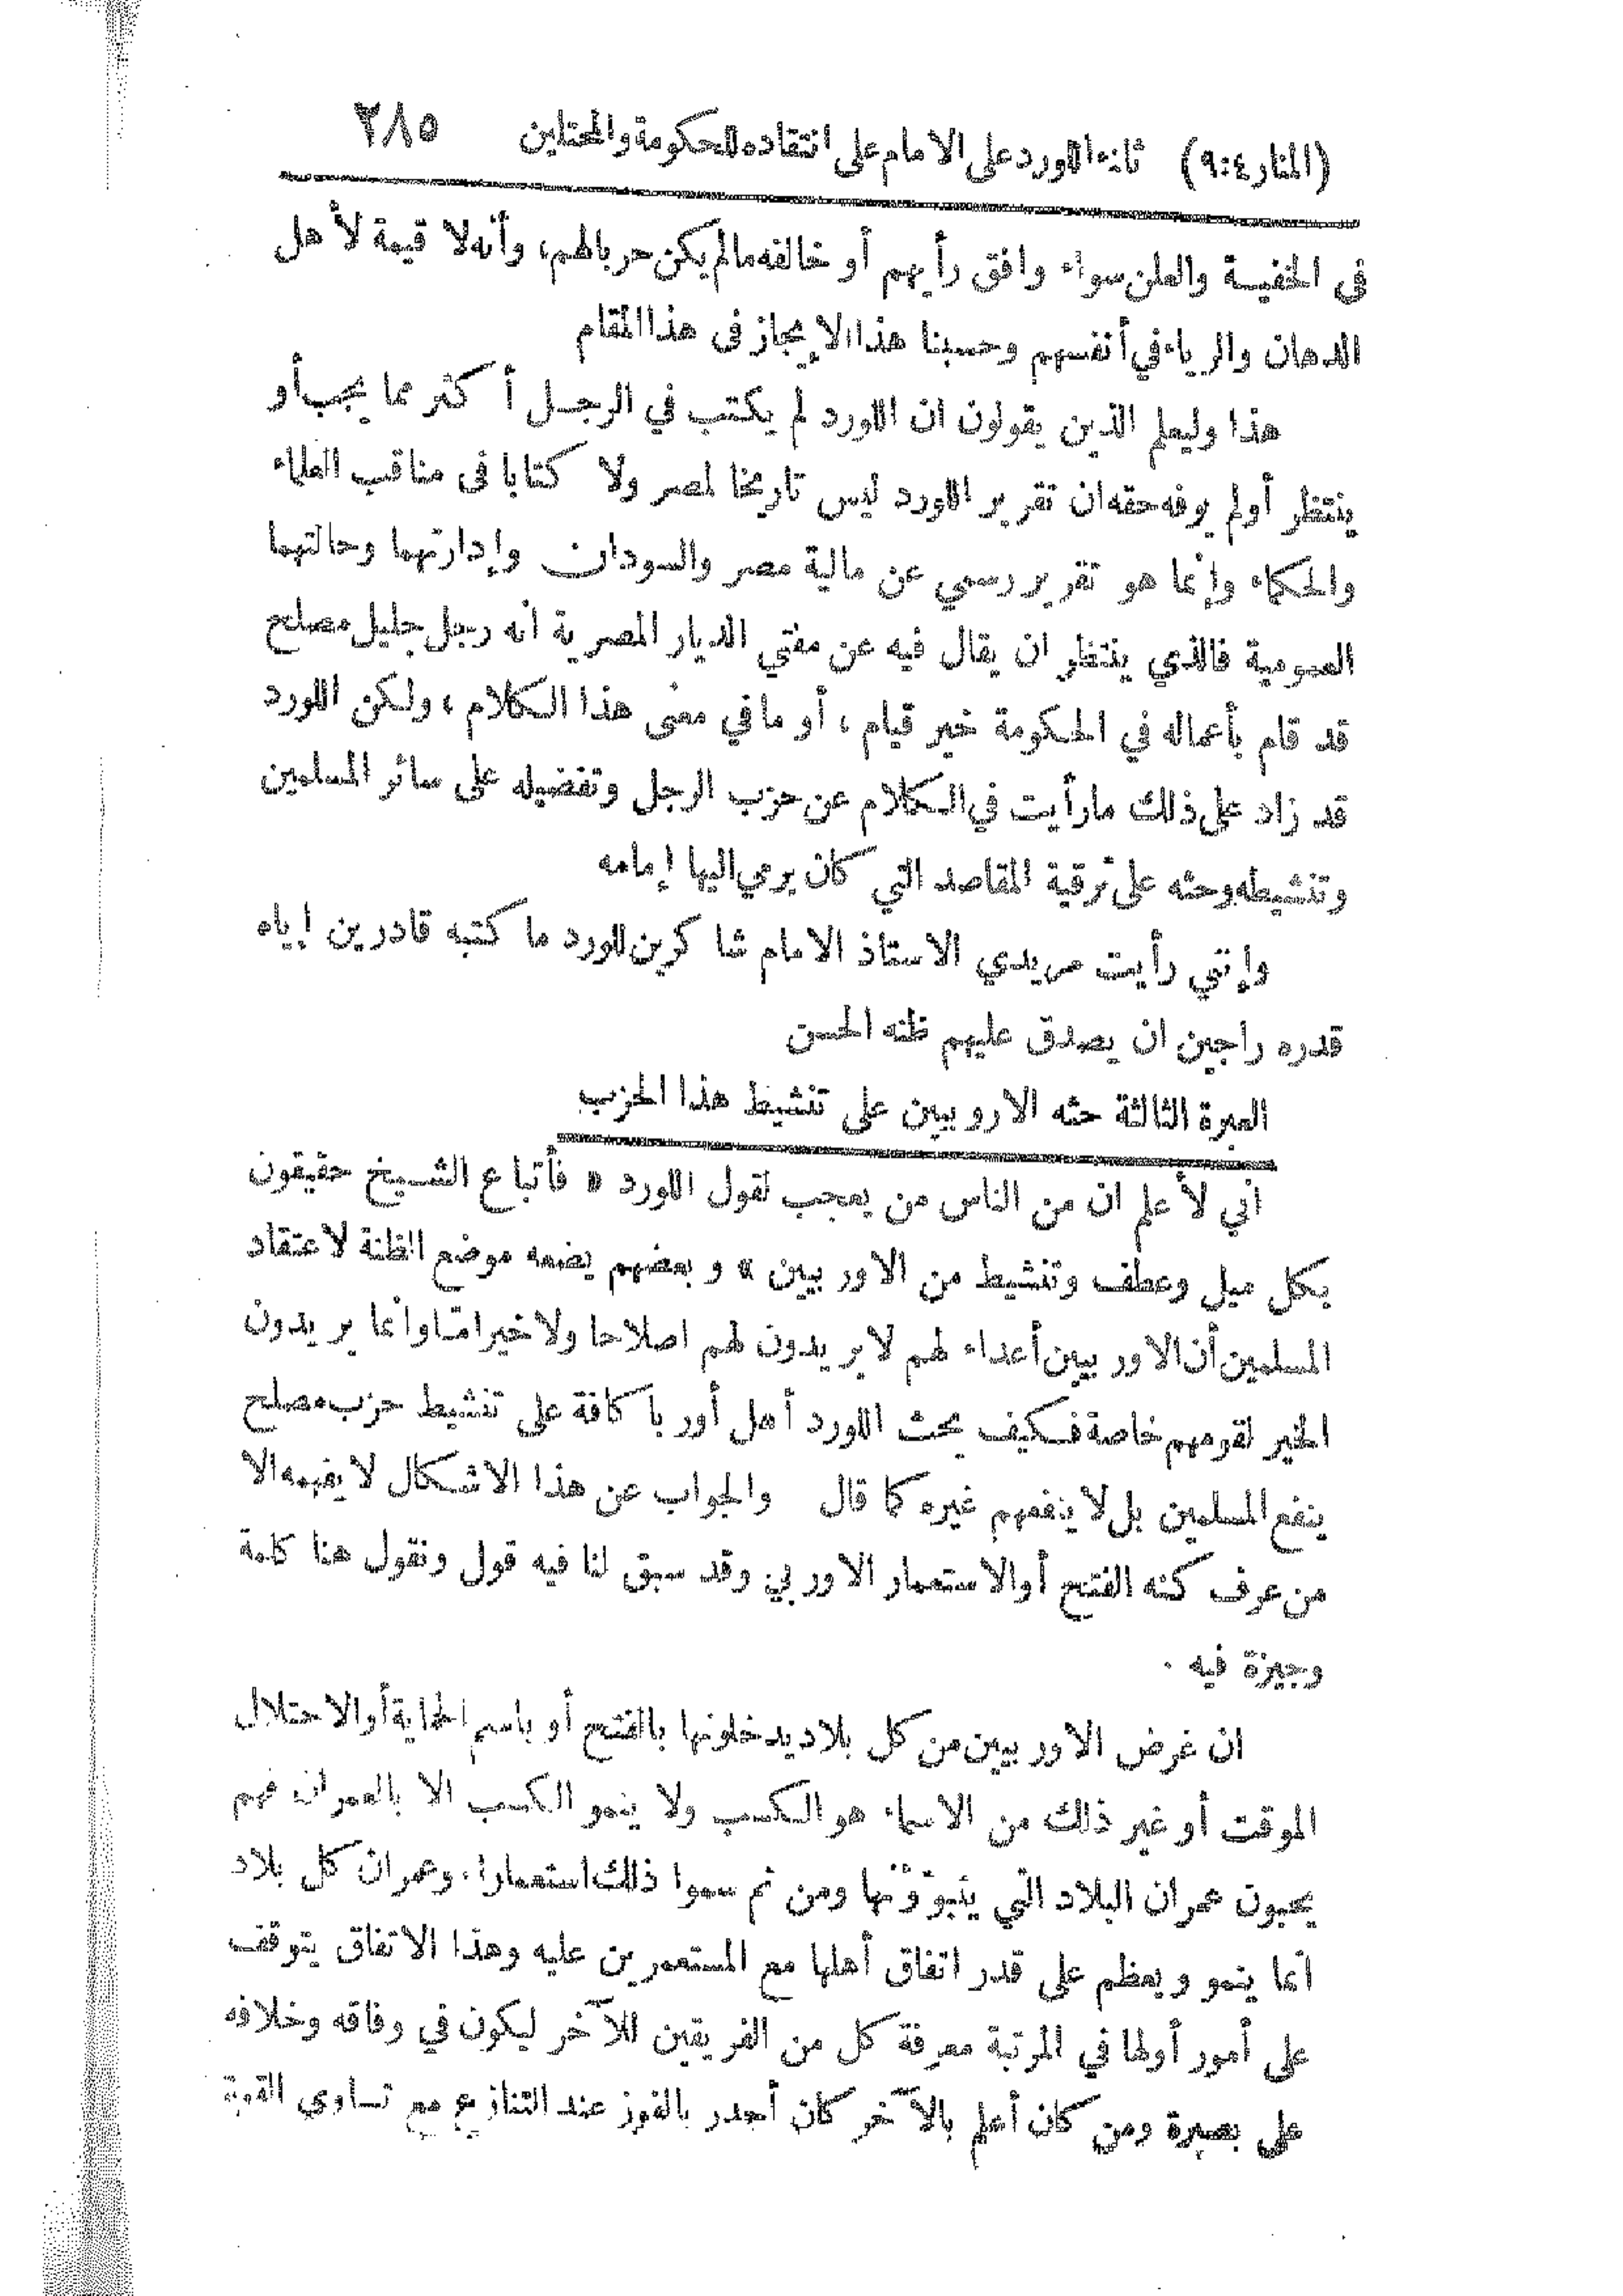 (المنار ٤:٩) ثناء اللورد على الامام على انتقاده للحكومة والمحتلين ٢٨٥
فى الخفيـة والعلن سواء وافق رأيهم أو خالفه مالم يكن حربا لهم، وأنه لا قيمة لأهل
الدهان والرياء في أنفسهم وحسبنا هذا الإيجاز فى هذا المقام
هذا وليعلم الذين يقولون ان اللورد لم يكتب في الرجـل أكثر مما يجب أو
ينتظر أولم يوفه حقه ان تقرير اللورد ليس تاريخا لمصر ولا كتابا فى مناقب العلماء
والحكماء وإنما هو تقرير رسمي عن مالية مصر والسودان وإدارتهما وحالتهما
العمومية فالذي ينتظر ان يقال فيه عن مفتي الديار المصرية انه رجل جليل مصلح
قد قام بأعماله في الحكومة خير قيام ، أو ما في معنى هذا الكلام ، ولكن اللورد
قد زاد على ذلك ما رأيت في الكلام عن حزب الرجل وتفضيله على سائر المسلمين
وتنشيطه وحثه على ترقية المقاصد التي كان يرمي اليها إمامه
وإنني رأيت مريدي الاستاذ الامام شاكرين للورد ما كتبه قادرين إياه
قدره راجين ان يصدق عليهم ظنه الحسن
العبرة الثالثة حثه الاروبيين على تنشيط هذا الحزب
اني لأعلم ان من الناس من يعجب لقول اللورد « فأتباع الشـيخ حقيقون
بكل ميل وعطف وتنشيط من الاوربيين » وبعضهم يضعه موضع الظنة لاعتقاد
المسلمين أن الاوربيين أعداء لهم لا يريدون لهم اصلاحا ولا خيرا مّا وانما يريدون
الخير لقومهم خاصة فـكيف يحث اللورد أهل أوربا كافة على تنشيط حزب مصلح
ينفع المسلمين بل لا ينفعهم غيره كما قال والجواب عن هذا الاشكال لا يفهمه الا
من عرف كنه الفتح أو الاستعمار الاوربي وقد سبق لنا فيه قول ونقول هنا كلمة
وجيزة فيه .
ان غرض الاوربيين من كل بلاد يدخلونها بالفتح أو باسم الحماية أو الاحتلال
الموقت أو غير ذلك من الاسماء هو الكسب ولا ينمو الكسب الا بالعمران فهم
يحبون عمران البلاد التي يتبوّؤنها ومن ثم سموا ذلك استعمارا، وعمران كل بلاد
انما ينمو ويعظم على قدر اتفاق أهلها مع المستعمرين عليه وهذا الاتفاق يتوقف
على أمور أولها في المرتبة معرفة كل من الفريقين للآخر ليكون في وفاقه وخلافه
على بصيرة ومن كان أعلم بالآخر كان أجدر بالفوز عند التنازع مع تساوي القوة